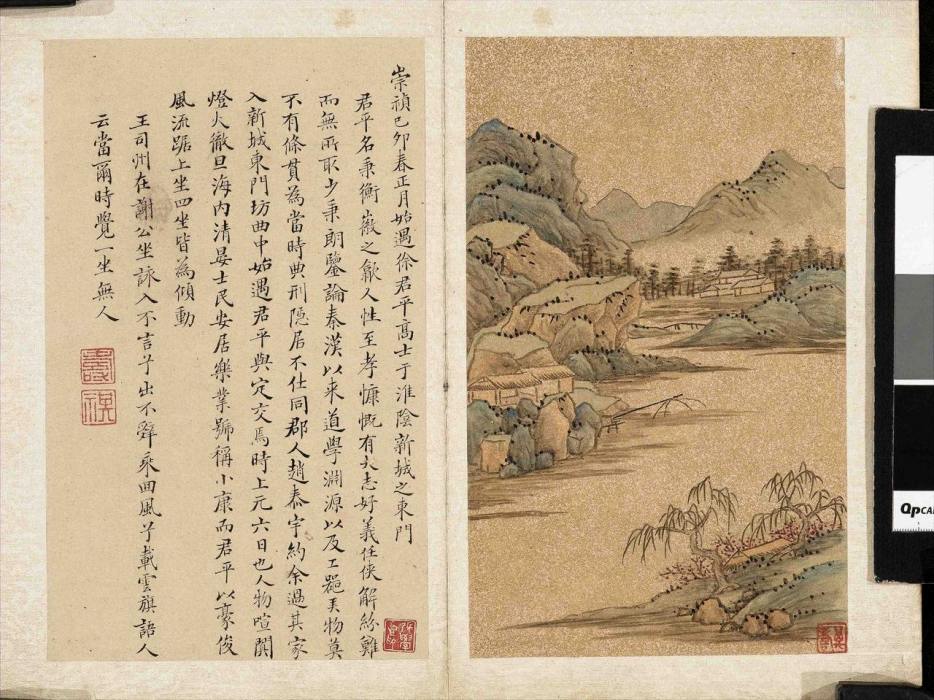 崇禎己卯春正月始遇徐君平高士于淮陰新城之東門
君平名秉衡徽之歙人性至孝慷慨有大志好義任俠解紛難
而無所取少秉朗鑒論秦漢以來道學淵源以及工藝美物莫
不有條貫為當時典刑隱居不仕同郡人趙泰宇約余過其家
入新城東門坊曲中始遇君平與定交焉時上元六日也人物喧闐
燈火徹旦海內清晏士民安居樂業號稱小康而君平以豪俊
風流踞上坐四坐皆為傾動
王司州在謝公坐詠入不言兮出不辭乘回風兮載雲旗語人
云當爾時覺一坐無人
壽祺
Qp